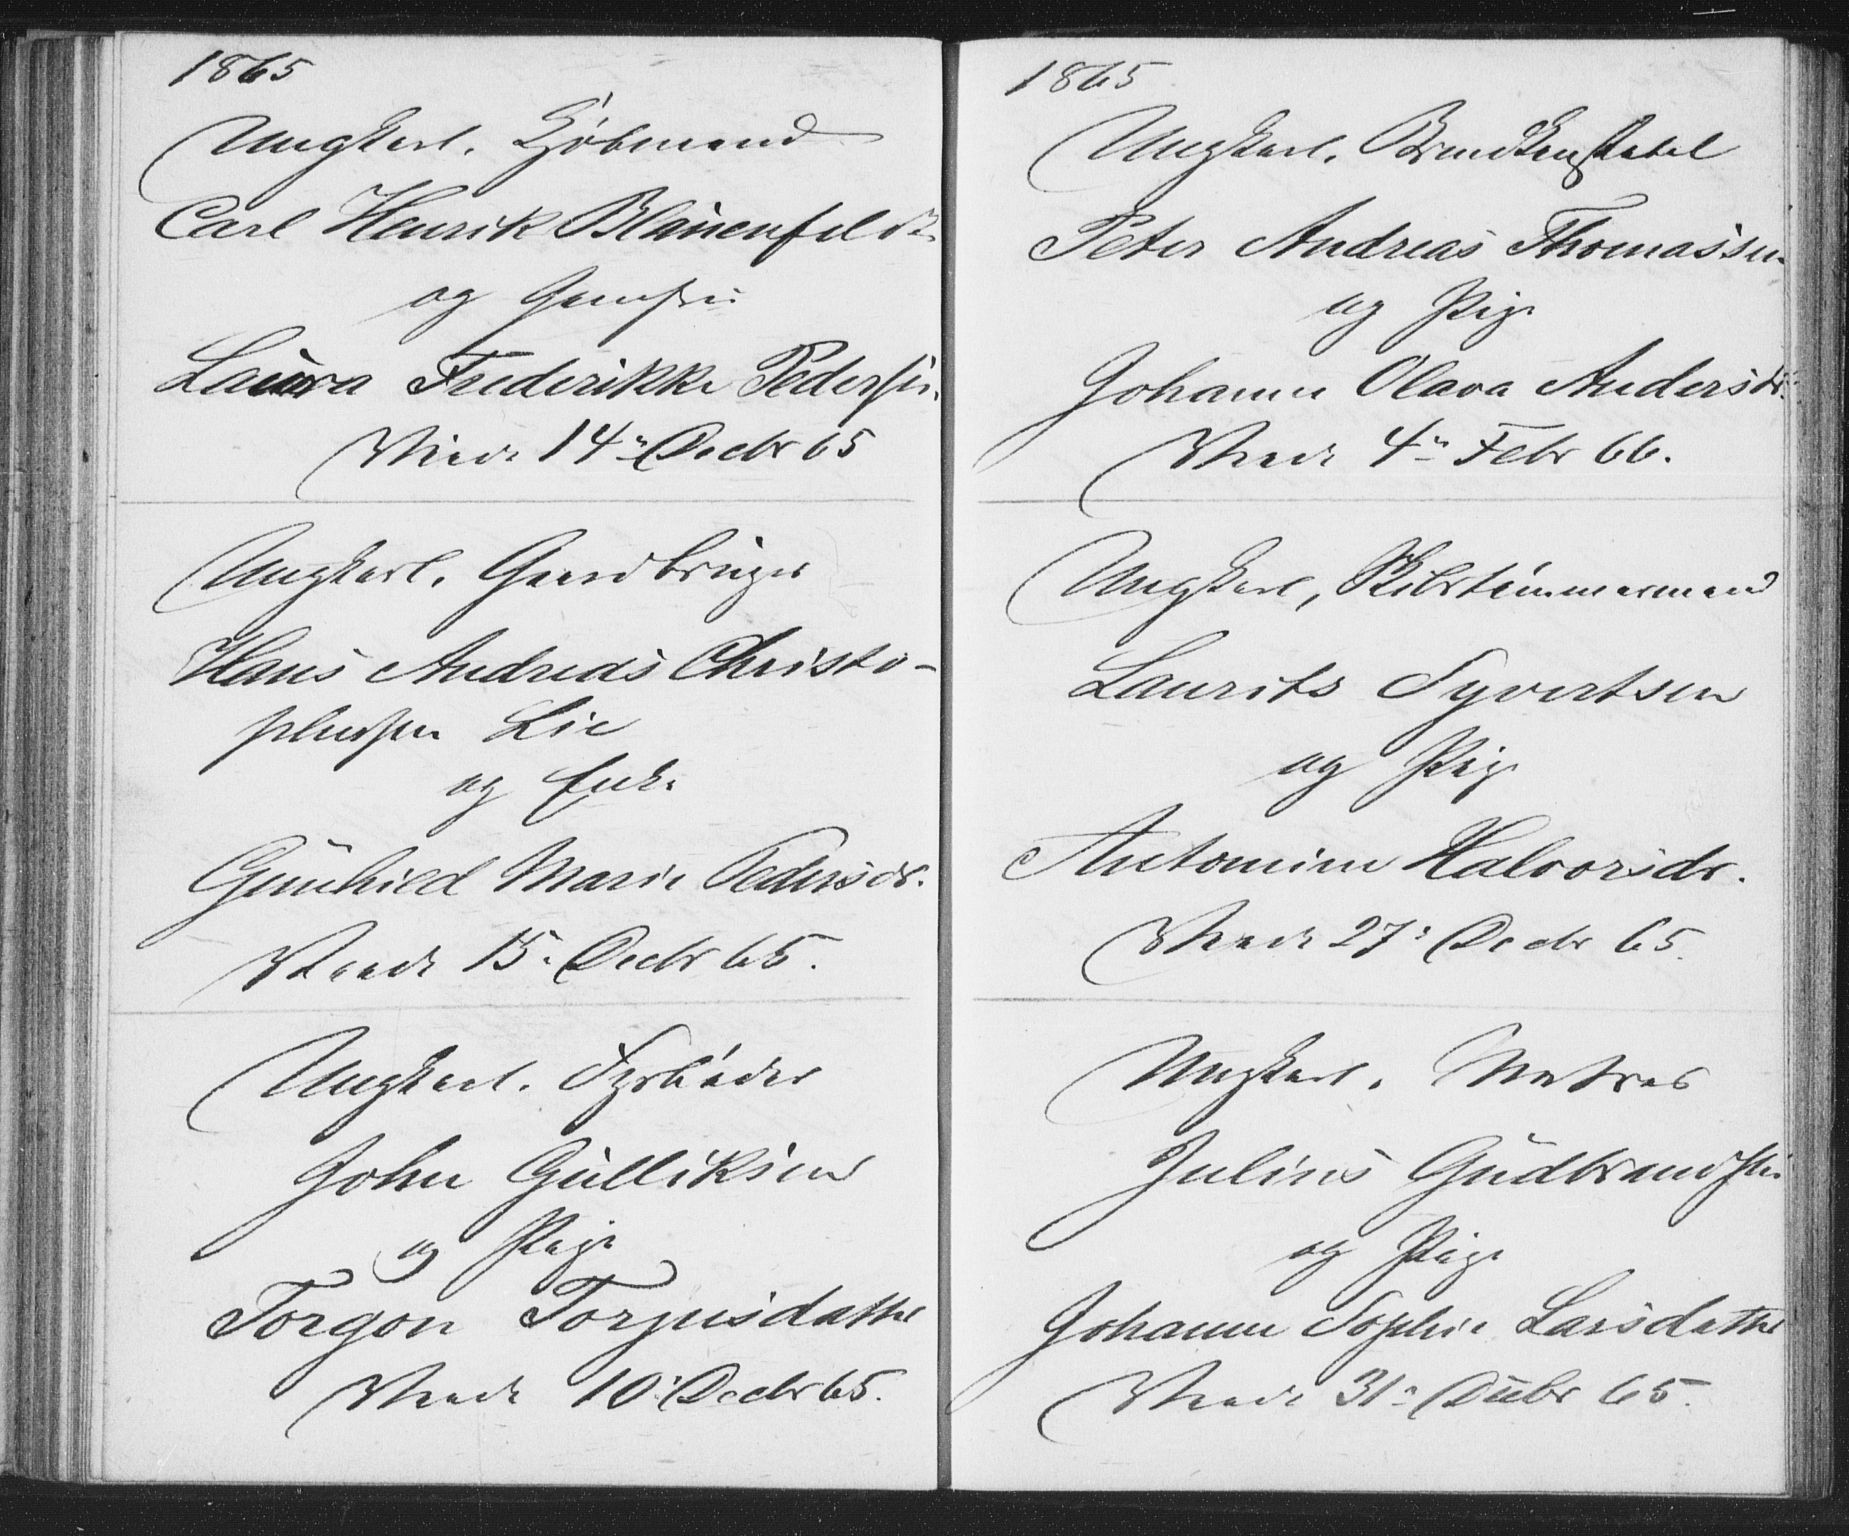 1865
Ungkarl. Kjøbmand
Carl Henrik Blauenfeldt
og Jomfru
Laura Frederikke Pedersen.
Viede 14de Decbr 65
Ungkarl. Gaardbruger
Hans Andreas Christo-
phersen Lie
og Enke
Gunhild Marie Pedersdr.
Viede 15. Decbr 65.
Ungkarl. Fyrbøder
John Gulliksen
og Pige
Torgon Torjusdatter
Viede 10. Decbr 65.
1865
Ungkarl.
Peter Andreas Thomassen
og Pige
Johanne Olava Andersdr.
Viede 4de Febr 66.
Ungkarl, Skibstømmermand
Laurits Syvertsen
og Pige
Antonine Halvorsdr.
Viede 27. Decbr 65.
Ungkarl. Matros
Julius Gudbrandsen
og Pige
Johanne Sophie Larsdatter
Viede 31. Decbr 65.